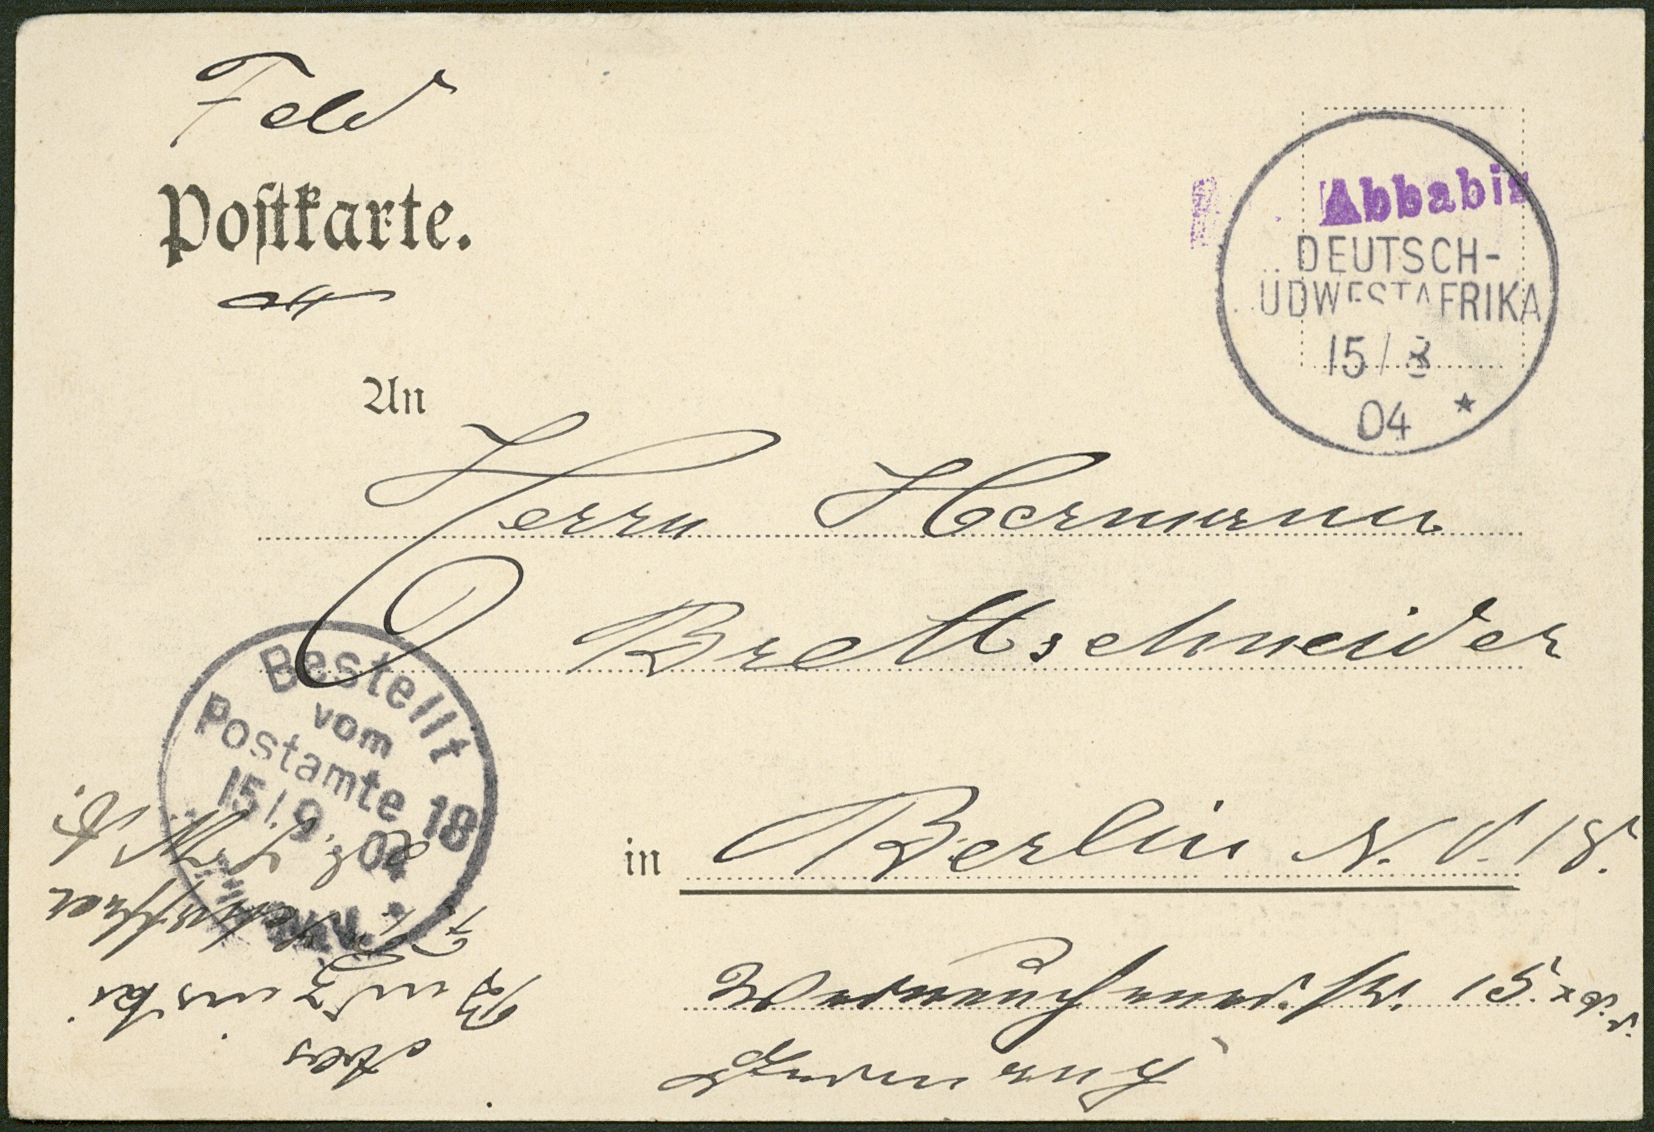 Feld
Postkarte.
Abbabis
DEUTSCH-
ÜDWESTAFRIKA
15/8
04 *
An
Herrn Hermann
Brettschneider
Bestellt
vom
Postamte 18
15/9.04
in Berlin N. O. 18.
Werneuchenerstr. 15.
Germany